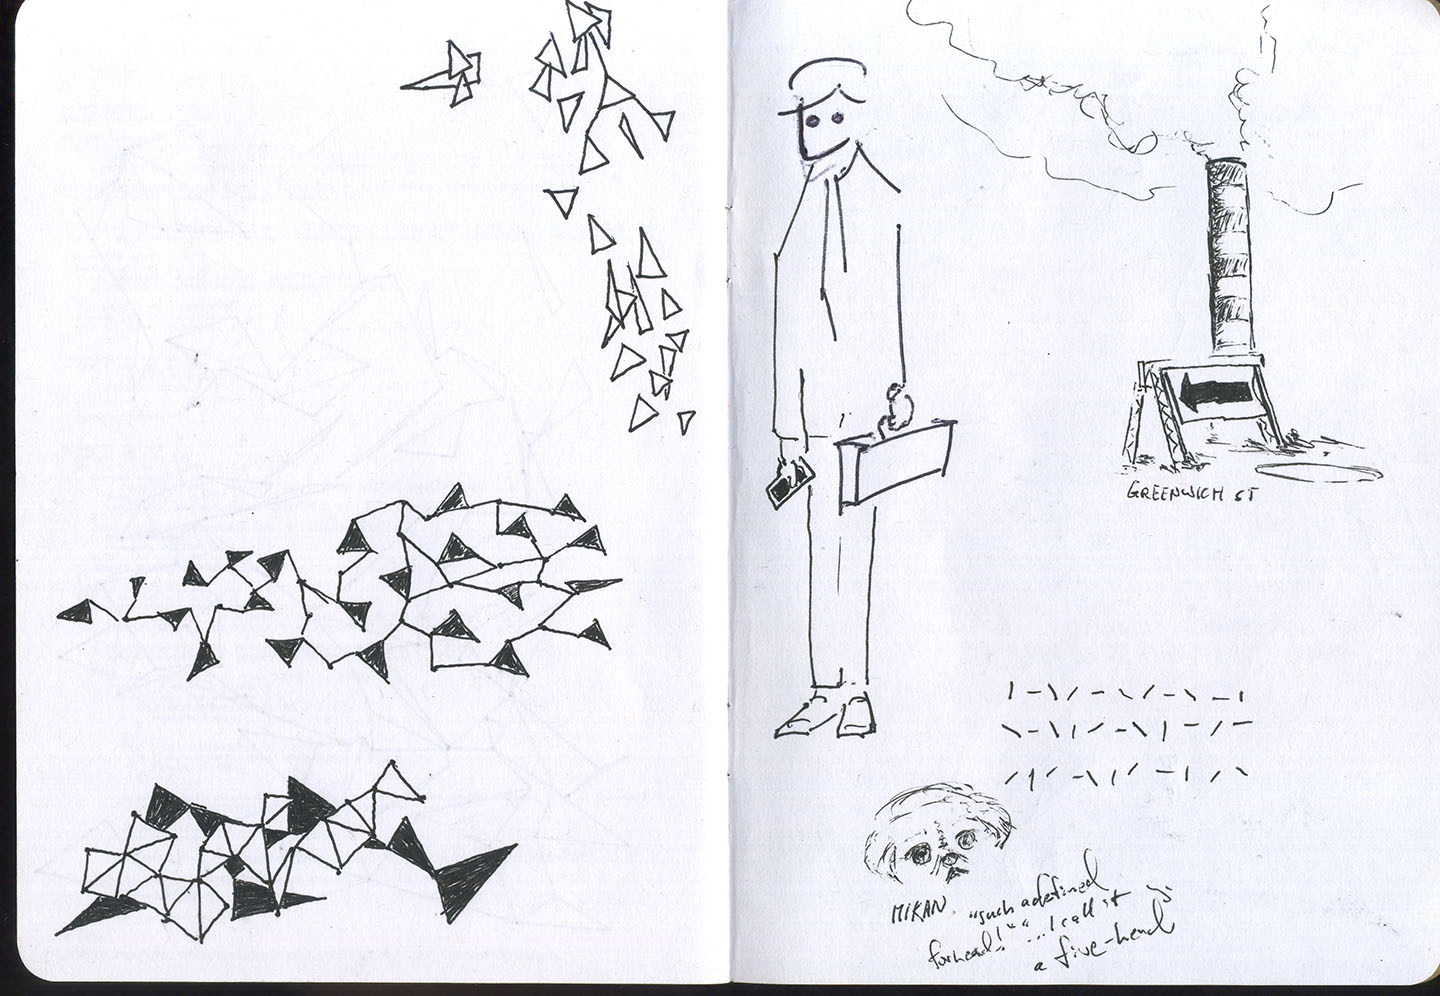 GREENWICH ST
MIKAN
"such a defined
forhead!" "...I call it
a five-head"